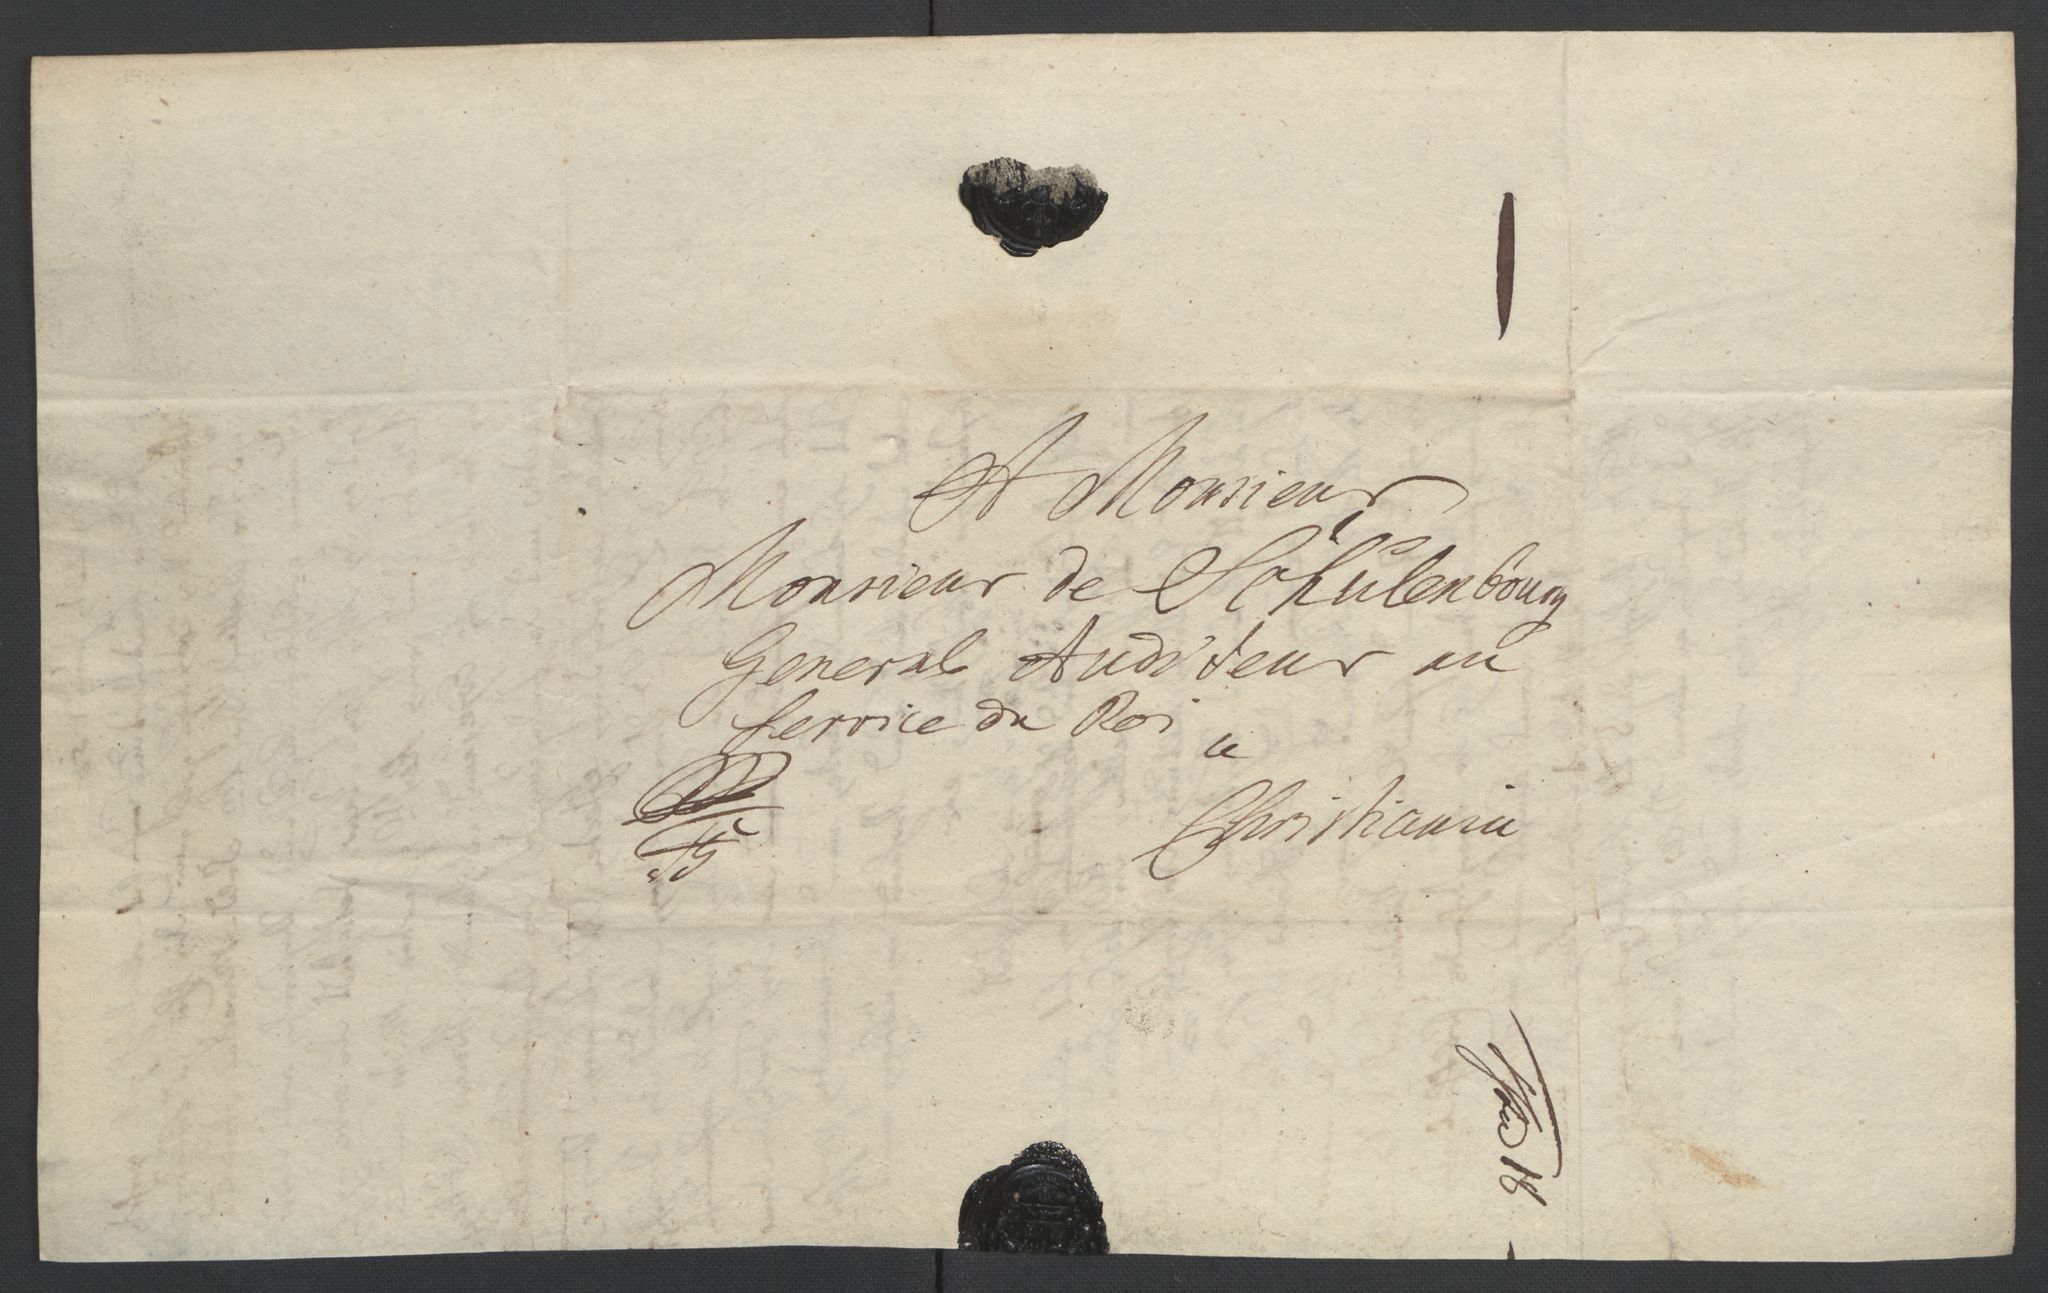 A Monsieur
Monsieur de Schulenbourg
General Auditeur au
Service du Roi
a
Christiania
18